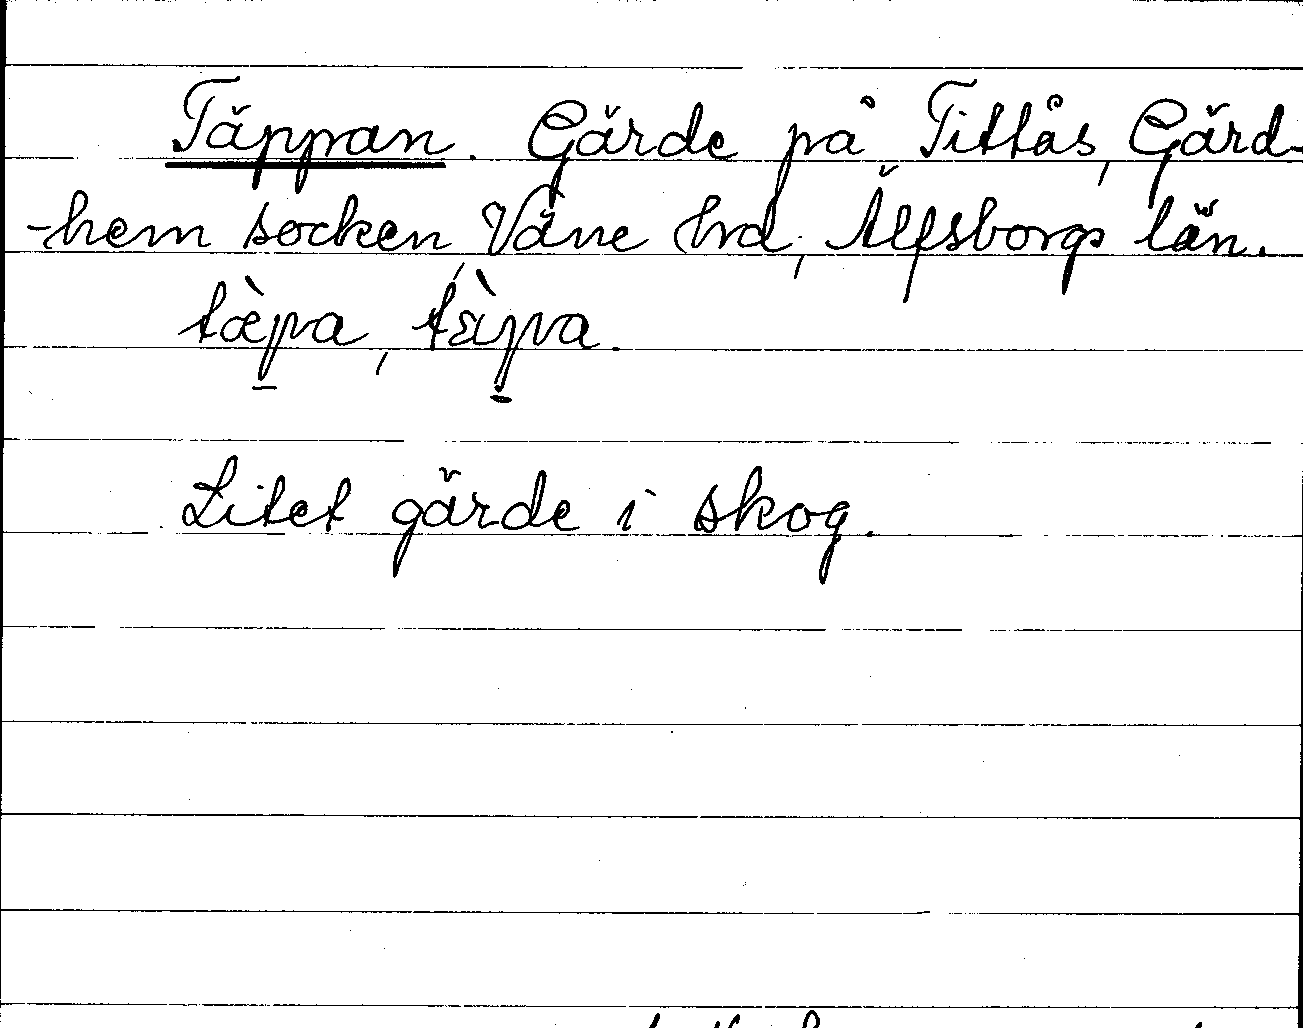 Täppan. Gärde på Tittås, Gärd-
-hem socken, Väne hd, Älfsborgs län.
tæ̀p̠a, tæ̀p̠a.
Litet gärde i skog.